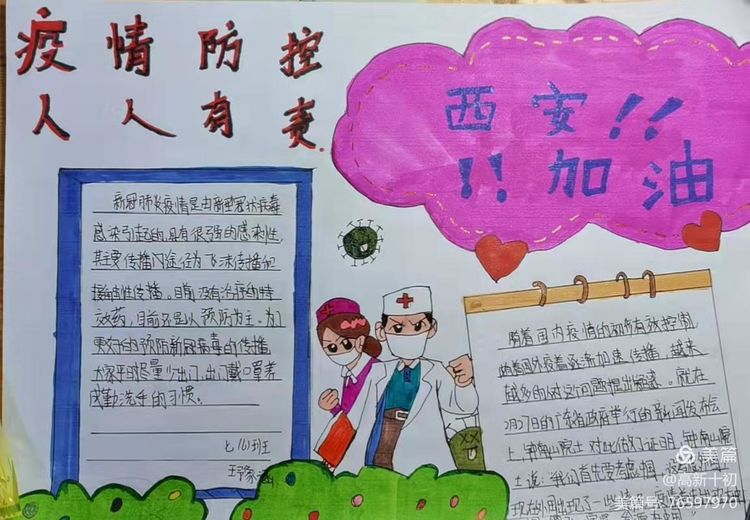 疫情防控
人人有责
西安!!
!!加油
新冠肺炎疫情是由新型冠状病毒
感染引起的,具有很强的感染性,
其主要传播门途径为飞沫传播和
接触性传播。目前没有治疗的特
效药,目前只是以预防为主。为了
更好的预防新冠病毒的传播
大家平时尽量少出门,出门戴口罩养
成勤洗手的习惯。
七(6)班
随着国内疫情的初步有效控制
随着国外疫情逐渐加速传播,越来
越多的人对这问题提出疑惑。就在
2月27日的广东省政府举行的新闻发布会
上,钟南山院士对此做了证明,钟南山院
士说:"我们首先要考虑中国,
现在外国出现了一些
美篇
@高新十初
美篇号:76597970